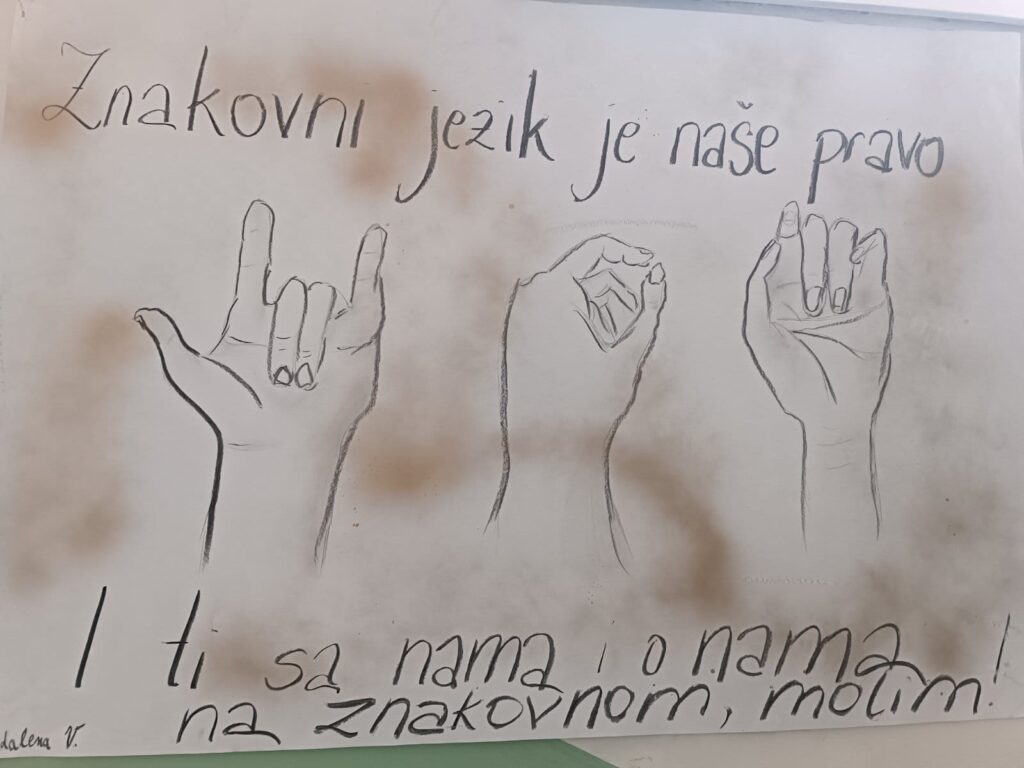 Znakovni jezik je naše pravo
I ti sa nama i o nama !
na znakovnom, molim!
dalena V.